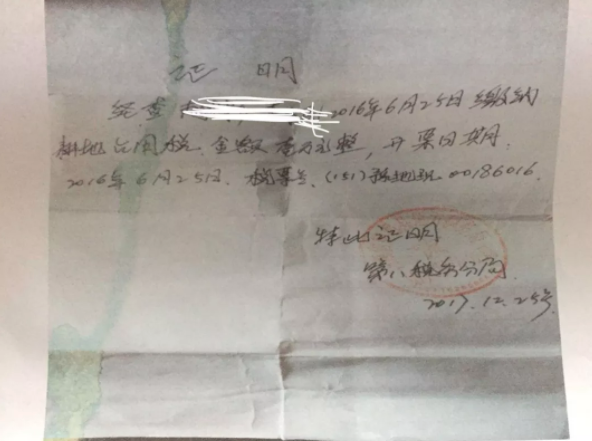 证 明
经查 2016年6月25日缴纳
耕地占用税、金额壹万元整,开票日期
2016年6月25日、税票号、(151) 00186016.
特此证明
第八税务分局
2017.12.25号